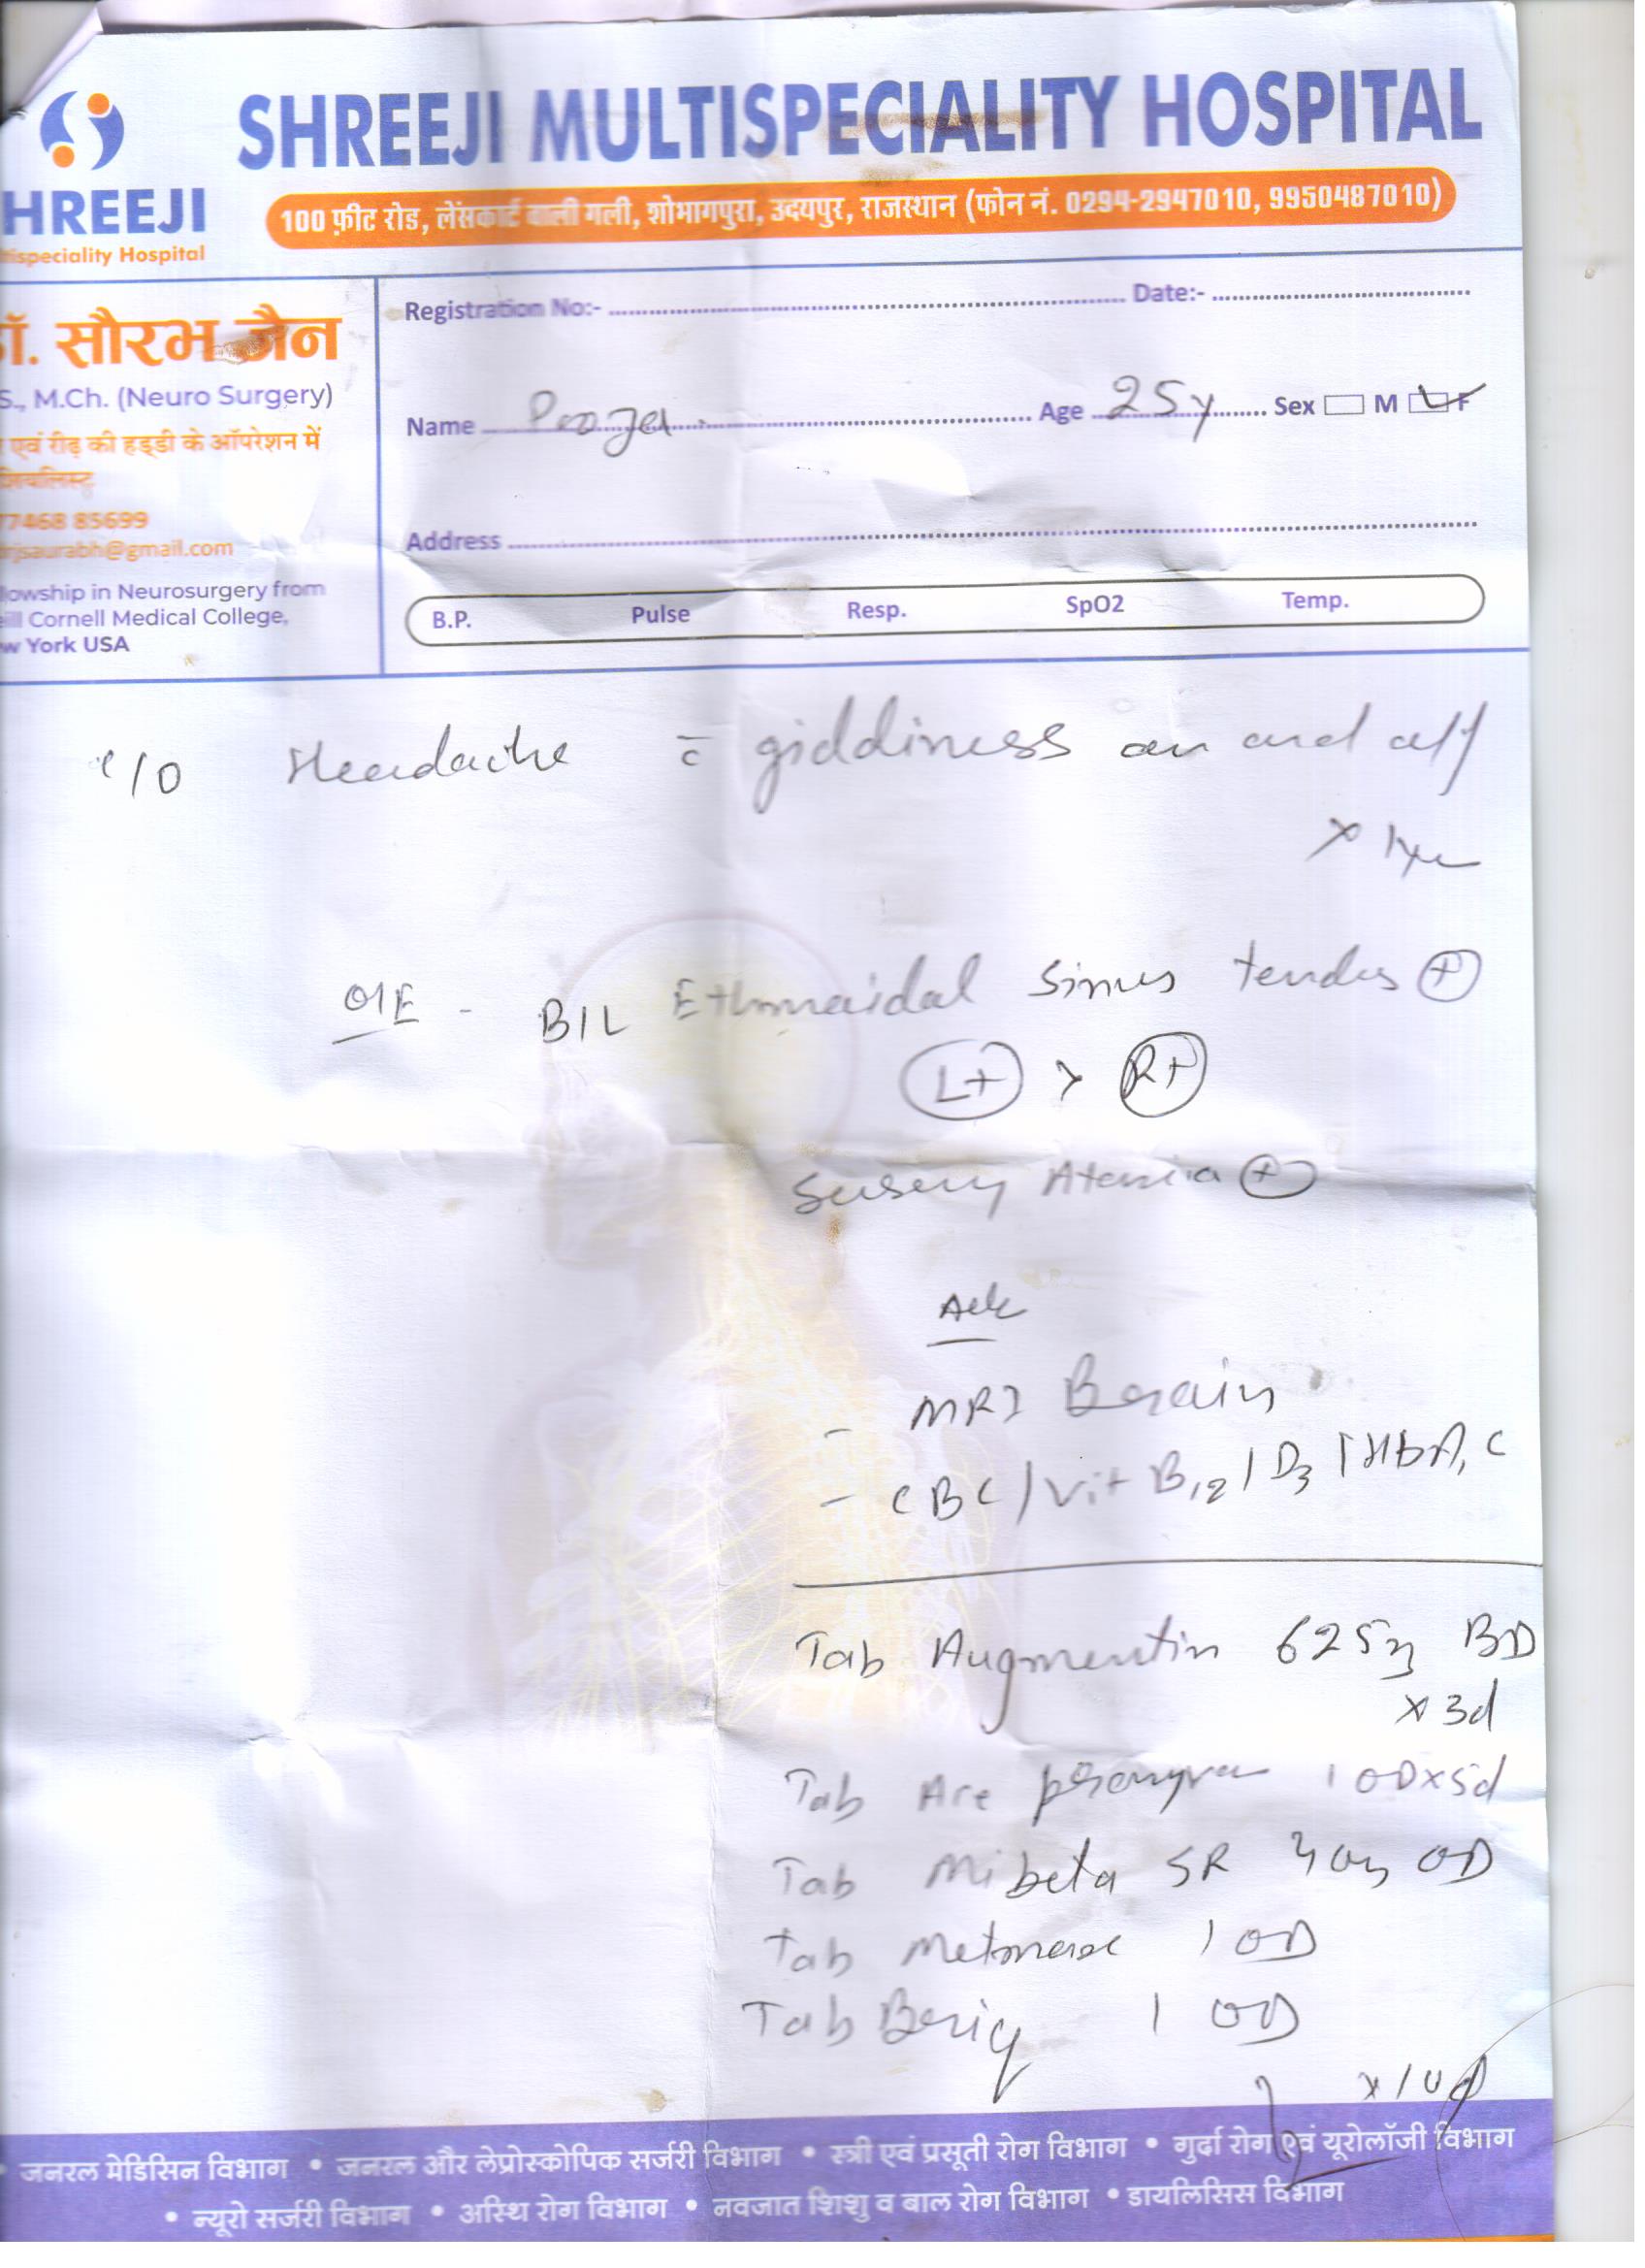 SHREEJI MULTISPECIALITY HOSPITAL
HREEJI
ispeciality Hospital
100 फ़ीट रोड, लेंसकार्ट वाली गली, शोभागपुरा, उदयपुर, राजस्थान (फोन नं. 0294-2947010, 9950487010)
ॉ. सौरभ जैन
S., M.Ch. (Neuro Surgery)
एवं रीढ़ की हड्डी के ऑपरेशन में
77468 85699
drjsaurabh@gmail.com
llowship in Neurosurgery from
eill Cornell Medical College,
w York USA
Registration No:- Date:-
Name Pooja Age 25y Sex M F
Address
B.P. Pulse Resp. SpO2 Temp.
c/o Headache c̄ giddiness on and off
x 1yr
O/E - B/L Ethmoidal Sinus tender (+)
(L+) > (R+)
Sensory Ataxia (+)
Adv
- MRI Brain
- CBC / Vit B12 / D3 / HbA1C
Tab Augmentin 625mg BD
x 3d
Tab 1 OD x 5d
Tab Mibeta SR OD
Tab 1 OD
Tab 1 OD
x 10d
जनरल मेडिसिन विभाग • जनरल और लेप्रोस्कोपिक सर्जरी विभाग • स्त्री एवं प्रसूती रोग विभाग • गुर्दा रोग एवं यूरोलॉजी विभाग
• न्यूरो सर्जरी विभाग • अस्थि रोग विभाग • नवजात शिशु व बाल रोग विभाग • डायलिसिस विभाग